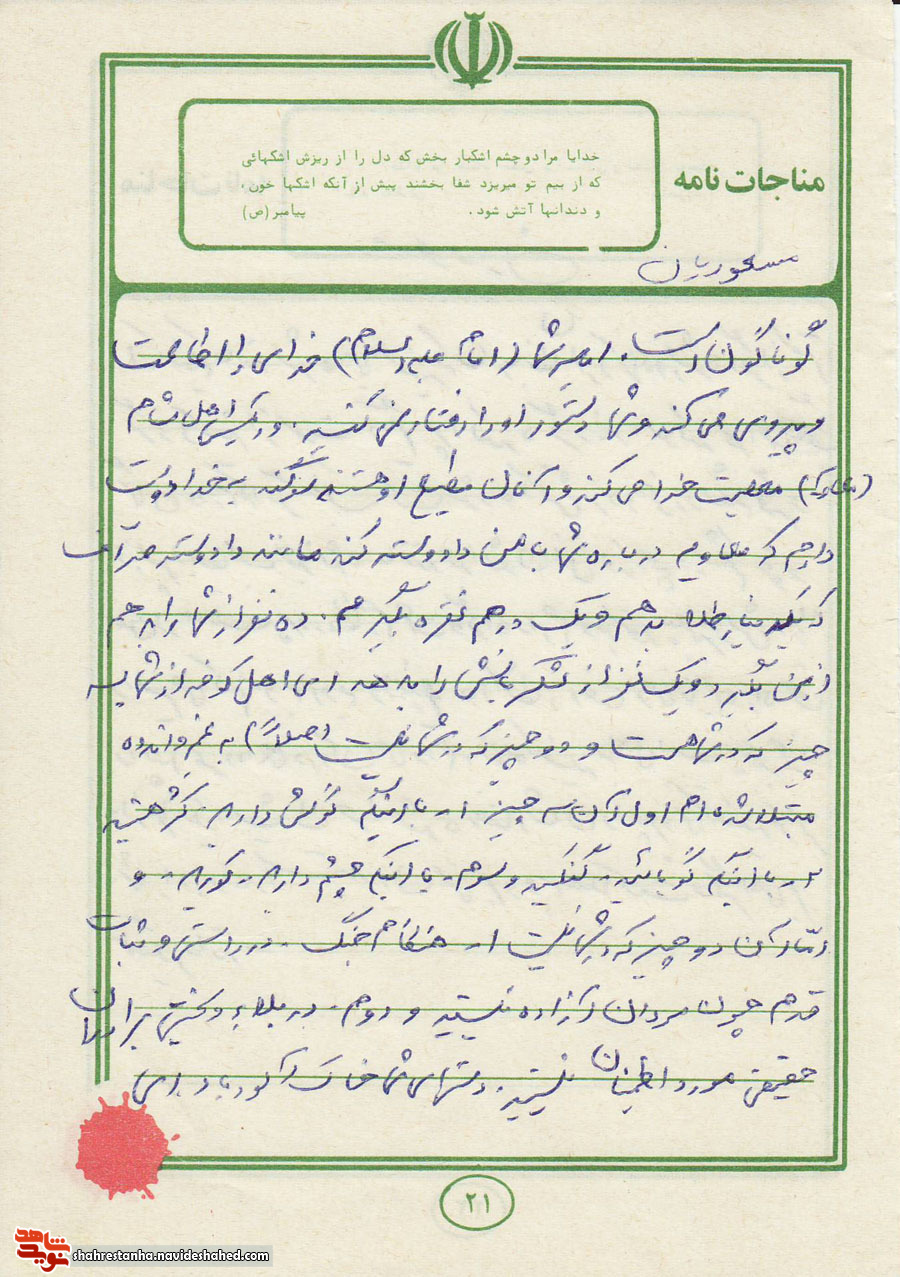 مناجات نامه
خدایا مرا دو چشم اشکبار بخش که دل را از ریزش اشکهائی
که از بیم تو میریزد شفا بخشند پیش از آنکه اشکها خون،
و دندانها آتش شود. پیامبر (ص)
گوناگون است. امیر شما (امام علیه السلام) خدای را اطاعت
و پیروی می کند و شما دستور او را رفتار نمی کنید. و رئیس اهل شام
(معاویه) معصیت خدا می کند و آنان مطیع او هستند سوگند به خدا دوست
دارم که معاویه درباره شما با من دادوستد کند مانند دادوستد صراف
که یک دینار طلا بدهم و یک درهم نقره بگیرم. ده نفر از شما را بدهم
از من بگیرد و یک نفر از لشگریانش را بدهد ای اهل کوفه از شما به سه
چیز که در شما هست و دو چیز که در شما نیست اصلاً) به غم و اندوه
مبتلا شده ام اول آن سه چیز ۱- با اینکه گوش دارید. کر هستید
۲- با اینکه گویائید. گنگید و سوم. با اینکه چشم دارید. کورید. و
امّا آن دو چیز که در شما نیست ۱- هنگام جنگ. در راستی و ثبات
قدم چون مردان آزاده نیستید و دوم. در بلاء و سختی برادران
حقیقی مورد اطمینان نیستید. دستهای شما خاک آلود باد ای
۲۱
شاهد
نوید
shahrestanha.navideshahed.com